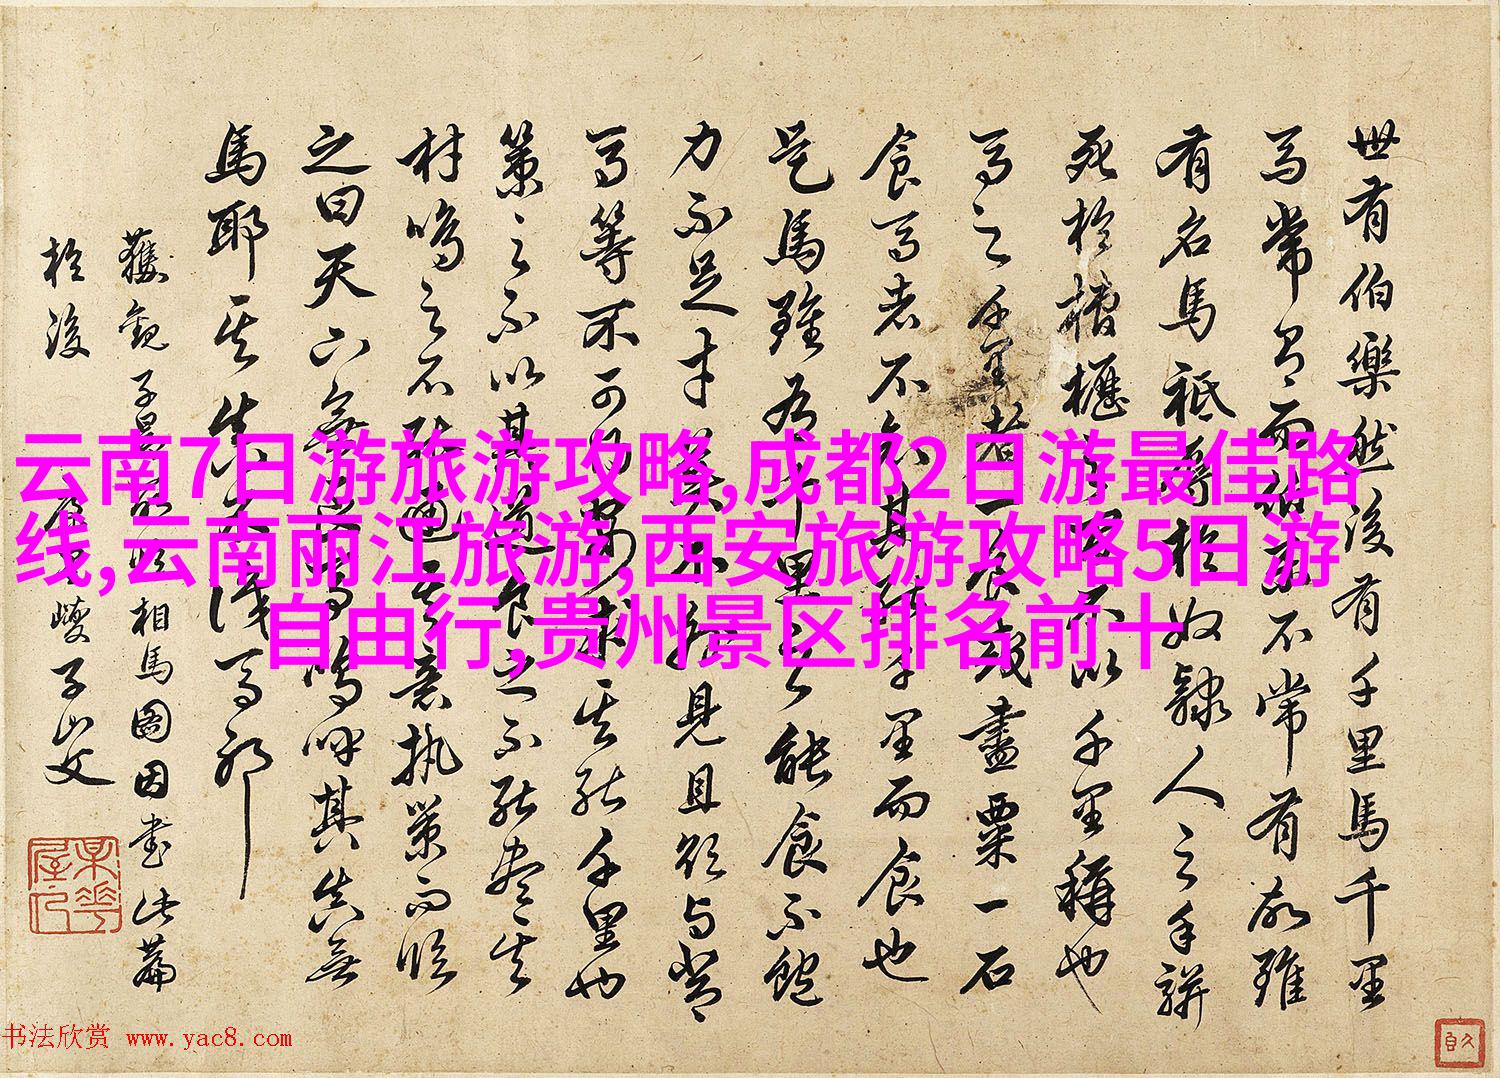 世有伯樂然後有千里馬千里
馬常有而伯樂不常有故雖
有名馬秖辱於奴隸人之手駢
死於槽櫪之間不以千里稱也
馬之千里者一食或盡粟一石
食馬者不知其能千里而食也
是馬雖有千里之能食不飽
力不足才美不外見且欲與常
馬等不可得安求其能千里也
策之不以其道食之不能盡其
材鳴之不能通其意執策而臨
之曰天下無良馬嗚呼其真無
馬耶其真不識馬耶
獲觀子昂所 相馬圖因書此篇
於後 康里巙子山父
云南7日游旅游攻略,成都2日游最佳路
线,云南丽江旅游,西安旅游攻略5日游
自由行,贵州景区排名前十
书法欣赏 www.yac8.com